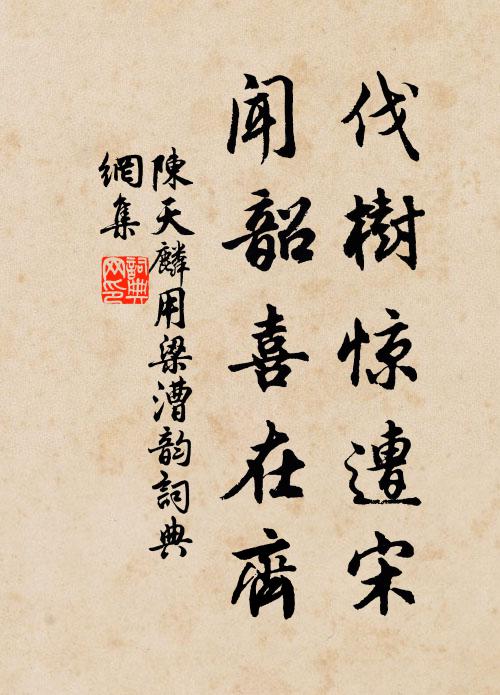 伐樹惊遭宋
聞韶喜在齊
陳天麟用梁漕韵詞典
網集
詞典
网印